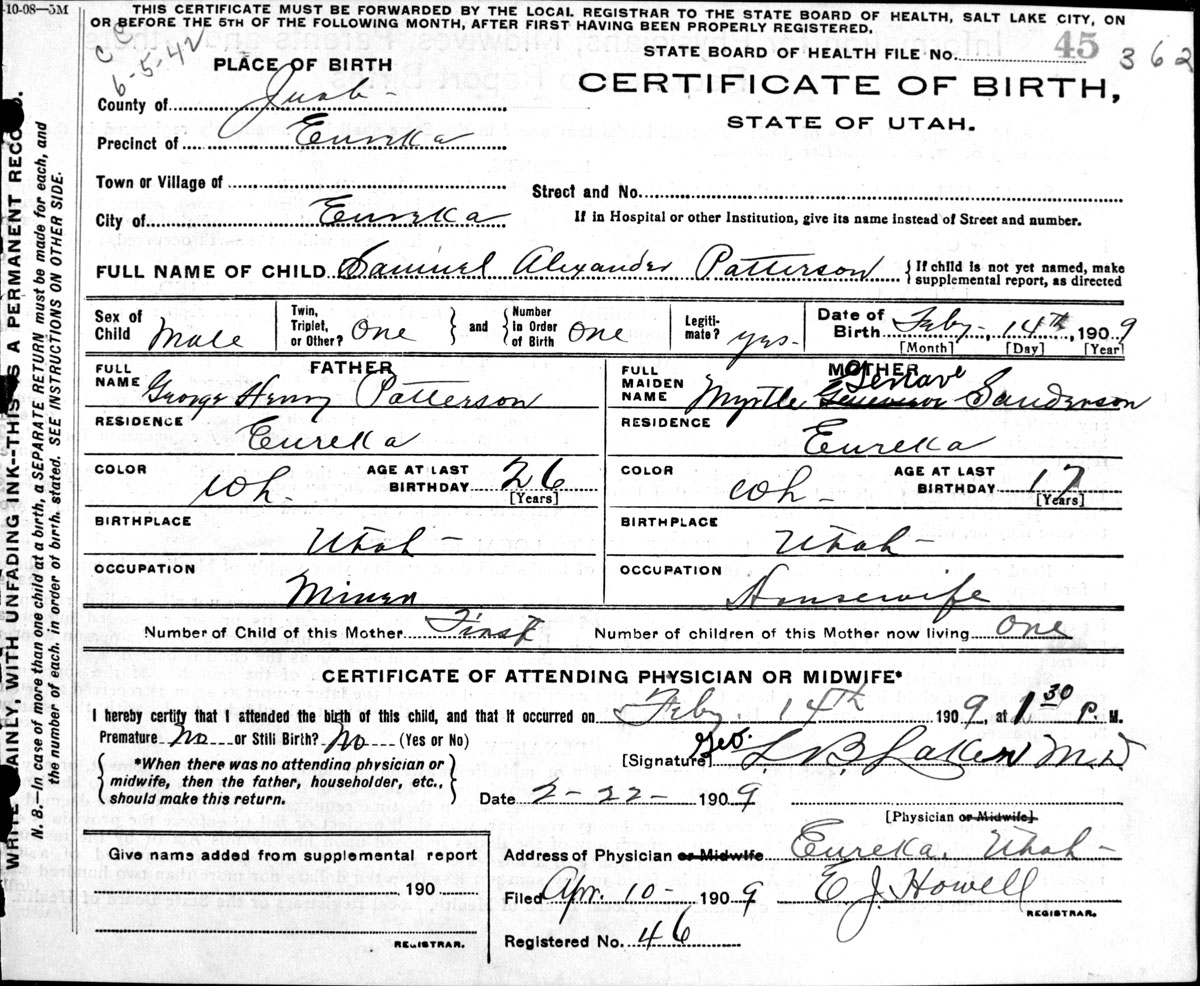 10-08—5M
THIS CERTIFICATE MUST BE FORWARDED BY THE LOCAL REGISTRAR TO THE STATE BOARD OF HEALTH, SALT LAKE CITY, ON
OR BEFORE THE 5TH OF THE FOLLOWING MONTH, AFTER FIRST HAVING BEEN PROPERLY REGISTERED.
6-5-42
STATE BOARD OF HEALTH FILE No. 45 362
PLACE OF BIRTH
CERTIFICATE OF BIRTH,
STATE OF UTAH.
County of Juab
Precinct of Eureka
Town or Village of
Street and No.
City of Eureka
If in Hospital or other Institution, give its name instead of Street and number.
FULL NAME OF CHILD Samuel Alexander Patterson {If child is not yet named, make
supplemental report, as directed
Sex of Child Male
Twin, Triplet, or Other? One } and { Number In Order of Birth One
Legitimate? yes-
Date of Birth Feby. 14th, 1909
[Month] [Day] [Year]
FATHER
FULL NAME George Henry Patterson
RESIDENCE Eureka
COLOR wh- AGE AT LAST BIRTHDAY 26 [Years]
BIRTHPLACE Utah-
OCCUPATION Miner
MOTHER
FULL MAIDEN NAME Myrtle Sanderson
RESIDENCE Eureka
COLOR wh- AGE AT LAST BIRTHDAY 17 [Years]
BIRTHPLACE Utah-
OCCUPATION Housewife
Number of Child of this Mother First Number of children of this Mother now living One
CERTIFICATE OF ATTENDING PHYSICIAN OR MIDWIFE*
I hereby certify that I attended the birth of this child, and that it occurred on Feby. 14th 1909 at 1 30 P. M.
Premature No or Still Birth? No (Yes or No)
{*When there was no attending physician or
midwife, then the father, householder, etc.,
should make this return.}
[Signature] Geo. M.D
Date 2-22- 1909
[Physician or Midwife]
Give name added from supplemental report
190
REGISTRAR.
Address of Physician or Midwife Eureka, Utah-
Filed Apr. 10- 1909 E J. Howell
REGISTRAR.
Registered No. 46
AINLY, WITH UNFADING INK--THIS IS A PERMANENT RECORD.
N. B.—In case of more than one child at a birth, a SEPARATE RETURN must be made for each, and
the number of each, in order of birth, stated. SEE INSTRUCTIONS ON OTHER SIDE.